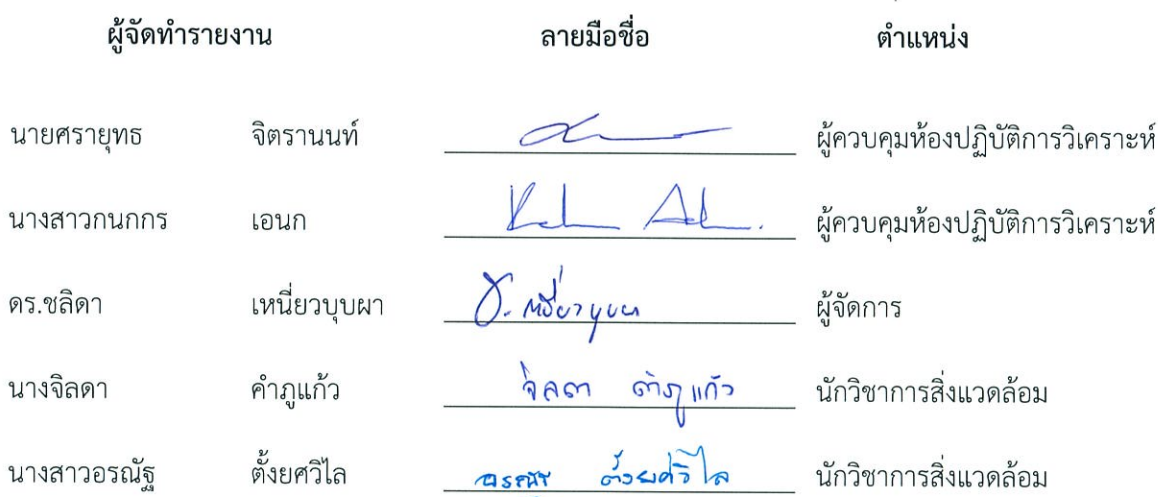 ผู้จัดทำรายงาน ลายมือชื่อ ตำแหน่ง
นายศรายุทธ จิตรานนท์ ผู้ควบคุมห้องปฏิบัติการวิเคราะห์
นางสาวกนกกร เอนก ผู้ควบคุมห้องปฏิบัติการวิเคราะห์
ดร.ชลิดา เหนี่ยวบุบผา ช. เหนี่ยวบุบผา ผู้จัดการ
นางจิลดา คำภูแก้ว จิลดา คำภูแก้ว นักวิชาการสิ่งแวดล้อม
นางสาวอรณัฐ ตั้งยศวิไล อรณัฐ ตั้งยศวิไล นักวิชาการสิ่งแวดล้อม